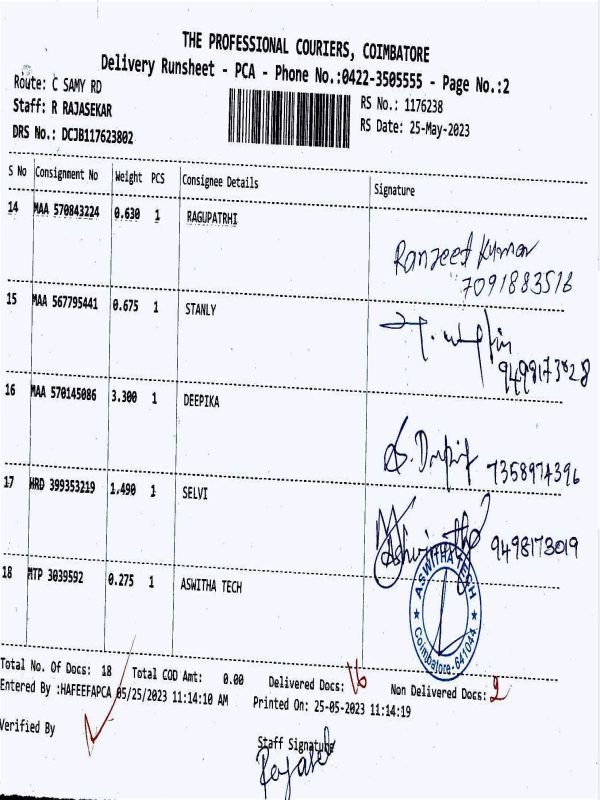 THE PROFESSIONAL COURIERS, COIMBATORE
Delivery Runsheet - PCA - Phone No.:0422-3505555 - Page No.:2
Route: C SAMY RD
RS No.: 1176238
Staff: R RAJASEKAR
RS Date: 25-May-2023
DRS No.: DCJB117623802
S No Consignment No Weight PCS Consignee Details Signature
14 MAA 570843224 0.630 1 RAGUPATRHI
Ranjeet Kumar
7091883516
15 MAA 567795441 0.675 1 STANLY
16 MAA 570145086 3.300 1 DEEPIKA
7358974396
17 HRD 399353219 1.490 1 SELVI
9498173019
18 MTP 3039592 0.275 1 ASWITHA TECH
ASWITHA TECH
Coimbatore-641044
Total No. Of Docs: 18 Total COD Amt: 0.00 Delivered Docs: 16 Non Delivered Docs: 2
Entered By :HAFEEFAPCA 05/25/2023 11:14:10 AM Printed On: 25-05-2023 11:14:19
Verified By
Staff Signature